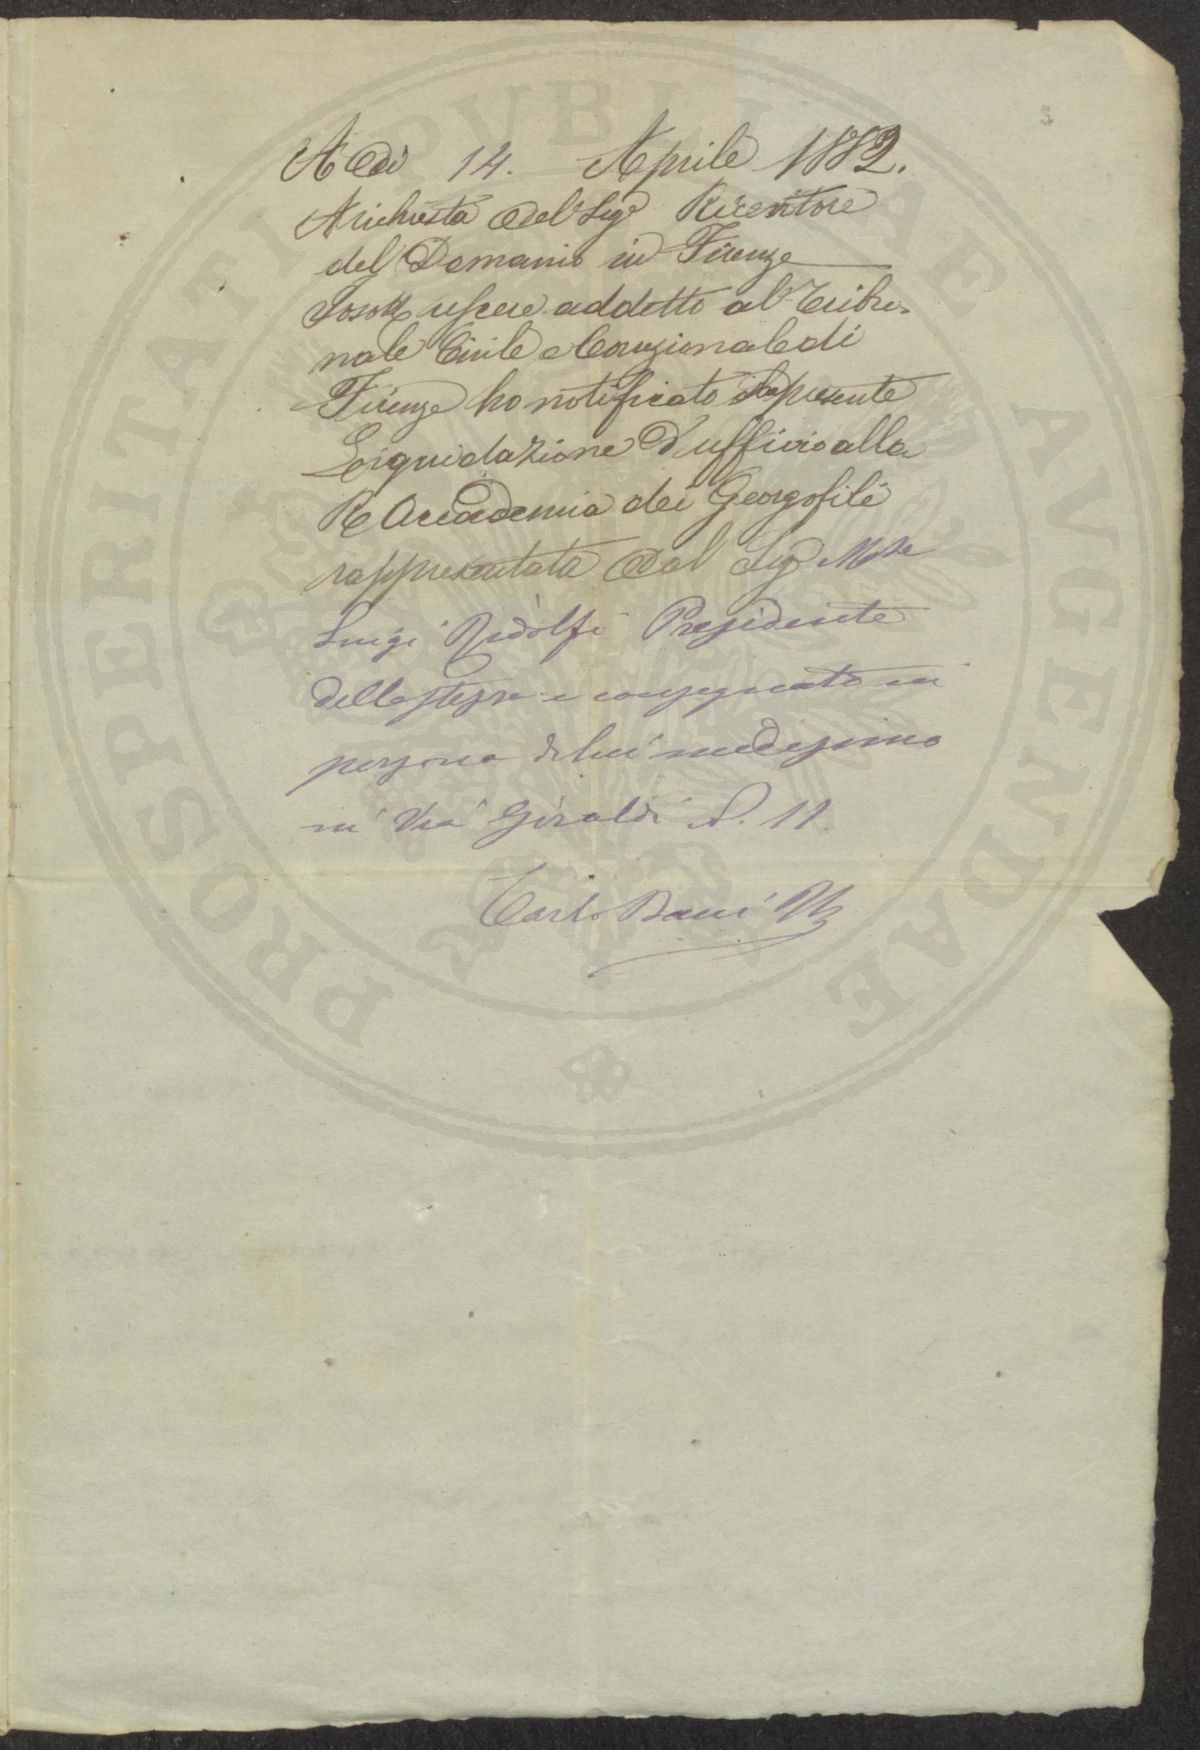 A dì 14. Aprile 1882.
A richiesta del Sigr Ricevitore
del Demanio in Firenze
Io sotto usciere addetto al Tribu-
nale Civile e Correzionale di
Firenze ho notificato la presente
Liquidazione d'ufficio alla
R Accademia dei Georgofili
rappresentata dal Sig Mse
Luigi Ridolfi Presidente
della stessa e consegnato in
persona di lui medesimo
in Via Giraldi N. 11.
Carlo
PROSPERITATI PUBLICAE AUGENDAE